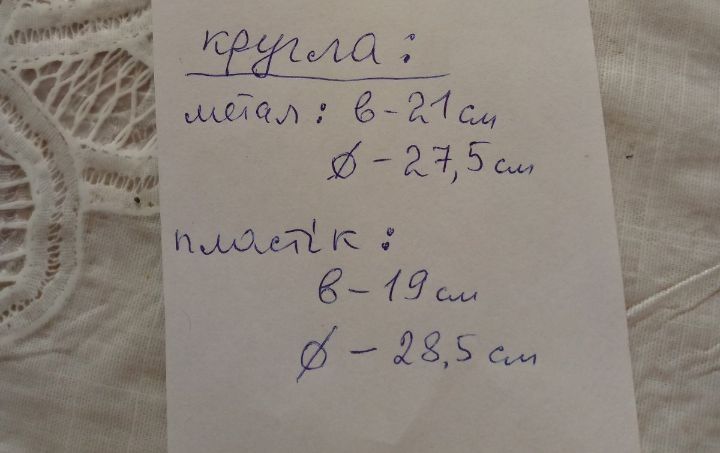 кругла:
метал: в-21см
Ø - 27,5см
пластік:
в-19см
Ø - 28,5см